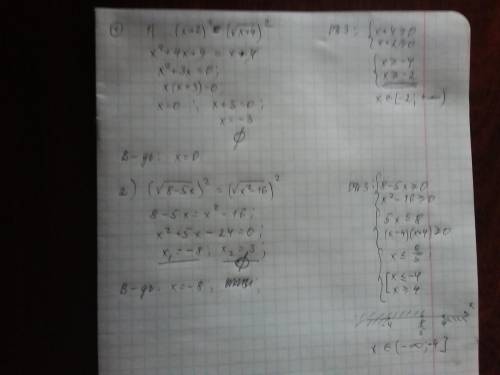 ① 1) (x+2)² = (√x+4)²
x²+4x+4 = x+4
x²+3x=0;
x(x+3)=0
x=0 ; x+3=0;
x=-3
∅
В-дь: x=0
ОДЗ: { x+4≥0
x+2≥0
{ x≥-4
x≥-2
x∈[-2; +∞)
2) (√8-5x)² = (√x²-16)²
8-5x=x²-16;
x²+5x-24=0;
x₁=-8; x₂=3;
∅
В-дь: x=-8;
ОДЗ: { 8-5x≥0
x²-16≥0
{ 5x≤8
(x-4)(x+4)≥0
{ x≤8/5
[ x≤-4
x≥4
-4 8/5 4 x
x∈(-∞;-4]